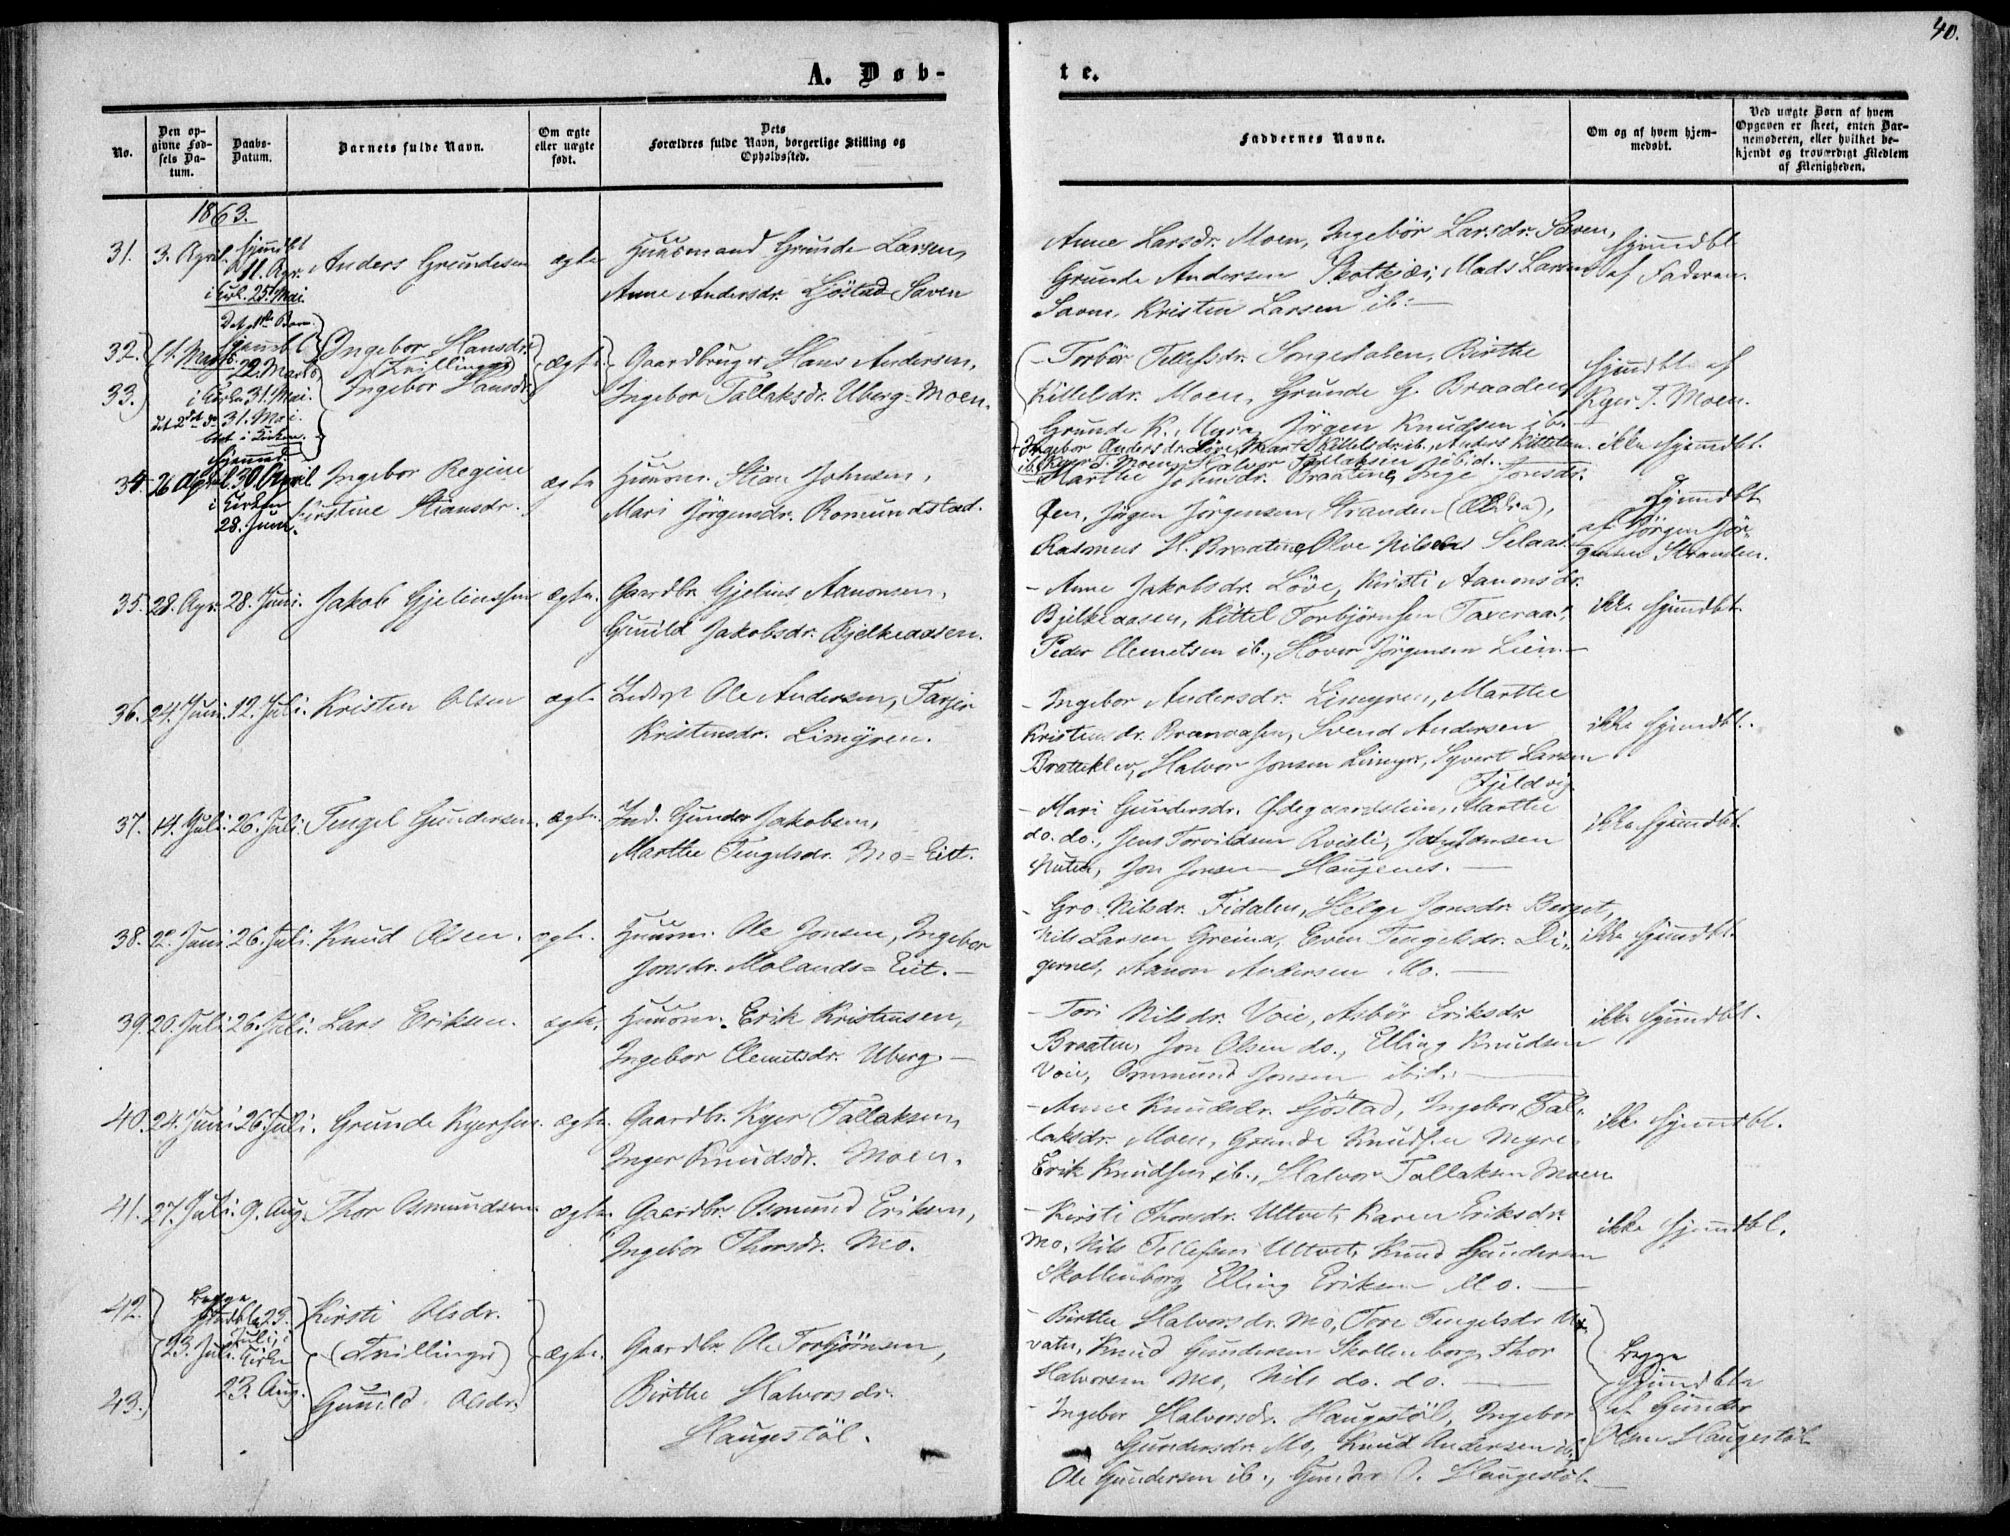 40.
A. Døb-
te.
No.
Den op-
givne Fød-
sels Da-
tum.
Daabs-
Datum.
Barnets fulde Navn.
Om ægte
eller uægte
født.
Dets
Forældres fulde Navn, borgerlige Stilling og
Opholdssted.
Faddernes Navne.
Om og af hvem hjem-
medøbt.
Ved uægte Børn af hvem
Opgaven er skeet, enten Bar-
nemoderen, eller hvilket be-
kjendt og troværdigt Medlem
af Menigheden.
1863.
31. 3. April. hjemdbt 11. Apr. i Kirk. 25. Mai. Anders Grundesen ægte Huusmand Grunde Larsen,
Anne Andersdr. Ljöstad Saven
Anne Larsdr. Moen, Ingebör Larsdr. Saven,
Grunde Andersen Mads Larsen
Saven, Kristen Larsen ib.
hjemdbt
af Faderen.
32. Det 1ste Barn hjemdbt 22. Marts
i Kirken 31. Mai.
33. det 2det do 31. Mai
døbt i Kirken.
Ingebor Hansdr.
(Tvillinger)
Ingebor Hansdr.
ægte. Gaardbruger Hans Andersen,
Ingebor Tallaksdr. Uberg-Moen.
- Torbör Tellefsdr. Songedalen, Birthe
Kittelsdr. Moen, Grunde G. Braaden,
Grunde K. Myre, Jörgen Knudsen ib.
hjemdbt af
Kyer T. Moen.
- Ingebor Andersdr. Löve, Kittelsdr. ib., Anders Kittelsen
ib. Kyer T. Moen, Halvor Tallaksen ibid.
ikke hjemdbt.
34. 26 April. hjemmed. 30. April i Kirken 28. Juni. Ingebor Regine
Kirstine Stiansdr. ægte Huusm. Stian Johnsen,
Mari Jörgensdr. Romundstad.
- Marthe Johnsdr. Braaten, Inge Jonsdr.
Jörgen Jörgensen Stranden
Rasmus H. Braaten, Olve Nilsen Selaas.
hjemdbt
af Jörgen Jör-
gensen Stranden.
35. 28. Apr. 28. Juni. Jakob Gjeliussen ægte. Gaardbr. Gjelius Aanonsen,
Gunild Jakobsdr. Bjelkeaasen.
- Anne Jakobsdr. Löve, Kirsti Aanonsdr.
Bjelkeaasen, Kittel Torbjörnsen Taxeraas,
Peder Clemetsen ib., Hover Jörgensen Lien.
ikke hjemdbt.
36. 24. Juni 12. Juli. Kristen Olsen ægte Inderst Ole Andersen, Tarjer
Kristensdr. Limyren.
- Ingebor Andersdr. Limyren, Marthe
Kristensdr. Svend Andersen
Bratteklev, Halvor Jonsen Limyr, Syvert Larsen
Fjeldvig
ikke hjemdbt.
37. 14. Juli. 26. Juli. Tengel Gundersen. ægte. Ind. Gunder Jakobsen,
Marthe Tengelsdr. Mo-Eiet.
- Mari Gundersdr. Ödegaardslien, Marthe
do. do., Jens Torvildsen Kvisli, Jonsen
Nuten, Jon Jonsen Haugenes.
ikke hjemdbt.
38. 22. Juni 26. Juli. Knud Olsen. ægte. Huusm. Ole Jonsen, Ingebor
Jonsdr. Molands-Eiet.
- Gro Nilsdr. Fidalen, Helge Jonsdr. Berget,
Nils Larsen Greina, Even Tengelsdr. Di-
gernes, Aanon Andersen Mo.
ikke hjemdbt.
39. 20. Juli 26. Juli. Lars Eriksen. ægte. Huusm. Erik Kristensen,
Ingebor Clemetsdr. Uberg.
- Tori Nilsdr. Voie, Asbör Eriksdr.
Braaten, Jon Olsen do., Elling Knudsen
Voie, Ommund Jonsen ibid.
ikke hjemdbt.
40. 24. Juni 26. Juli. Grunde Kyersen. ægte. Gaardbr. Kyer Tallaksen,
Inger Knudsdr. Moen.
- Anne Knudsdr. Ljöstad, Ingebor Tal-
laksdr. Moen, Grunde Knudsen Myre,
Erik Knudsen ib., Halvor Tallaksen Moen
ikke hjemdbt.
41. 27. Juli. 9. Aug. Thor Osmundsen. ægte. Gaardbr. Osmund Eriksen,
Ingebor Thorsdr. Mo.
- Kirsti Thorsdr. Ultvet, Karen Eriksdr.
Mo, Nils Tellefsen Ultvet, Knud Gundersen
Skollenborg, Elling Eriksen Mo.
ikke hjemdbt.
42. Begge hjemdbte 23. Juli, i Kirke 23. Aug. Kirsti Olsdr.
23. Juli. (Tvillinger) ægte.
43. Gunild Olsdr.
Gaardbr. Ole Torbjörnsen,
Birthe Halvorsdr.
Haugestöl.
- Birthe Halvorsdr. Mo, Tore Tengelsdr.
vatn, Knud Gundersen Skollenborg, Thor
Halvorsen Mo, Nils do. do.
- Ingebor Halvorsdr. Haugestöl, Ingebor
Gundersdr. Mo, Knud Andersen ib.
Ole Gundersen ib., Gunder O. Haugestöl.
Begge
hjemdbte
af Gunder
Olsen Haugestöl